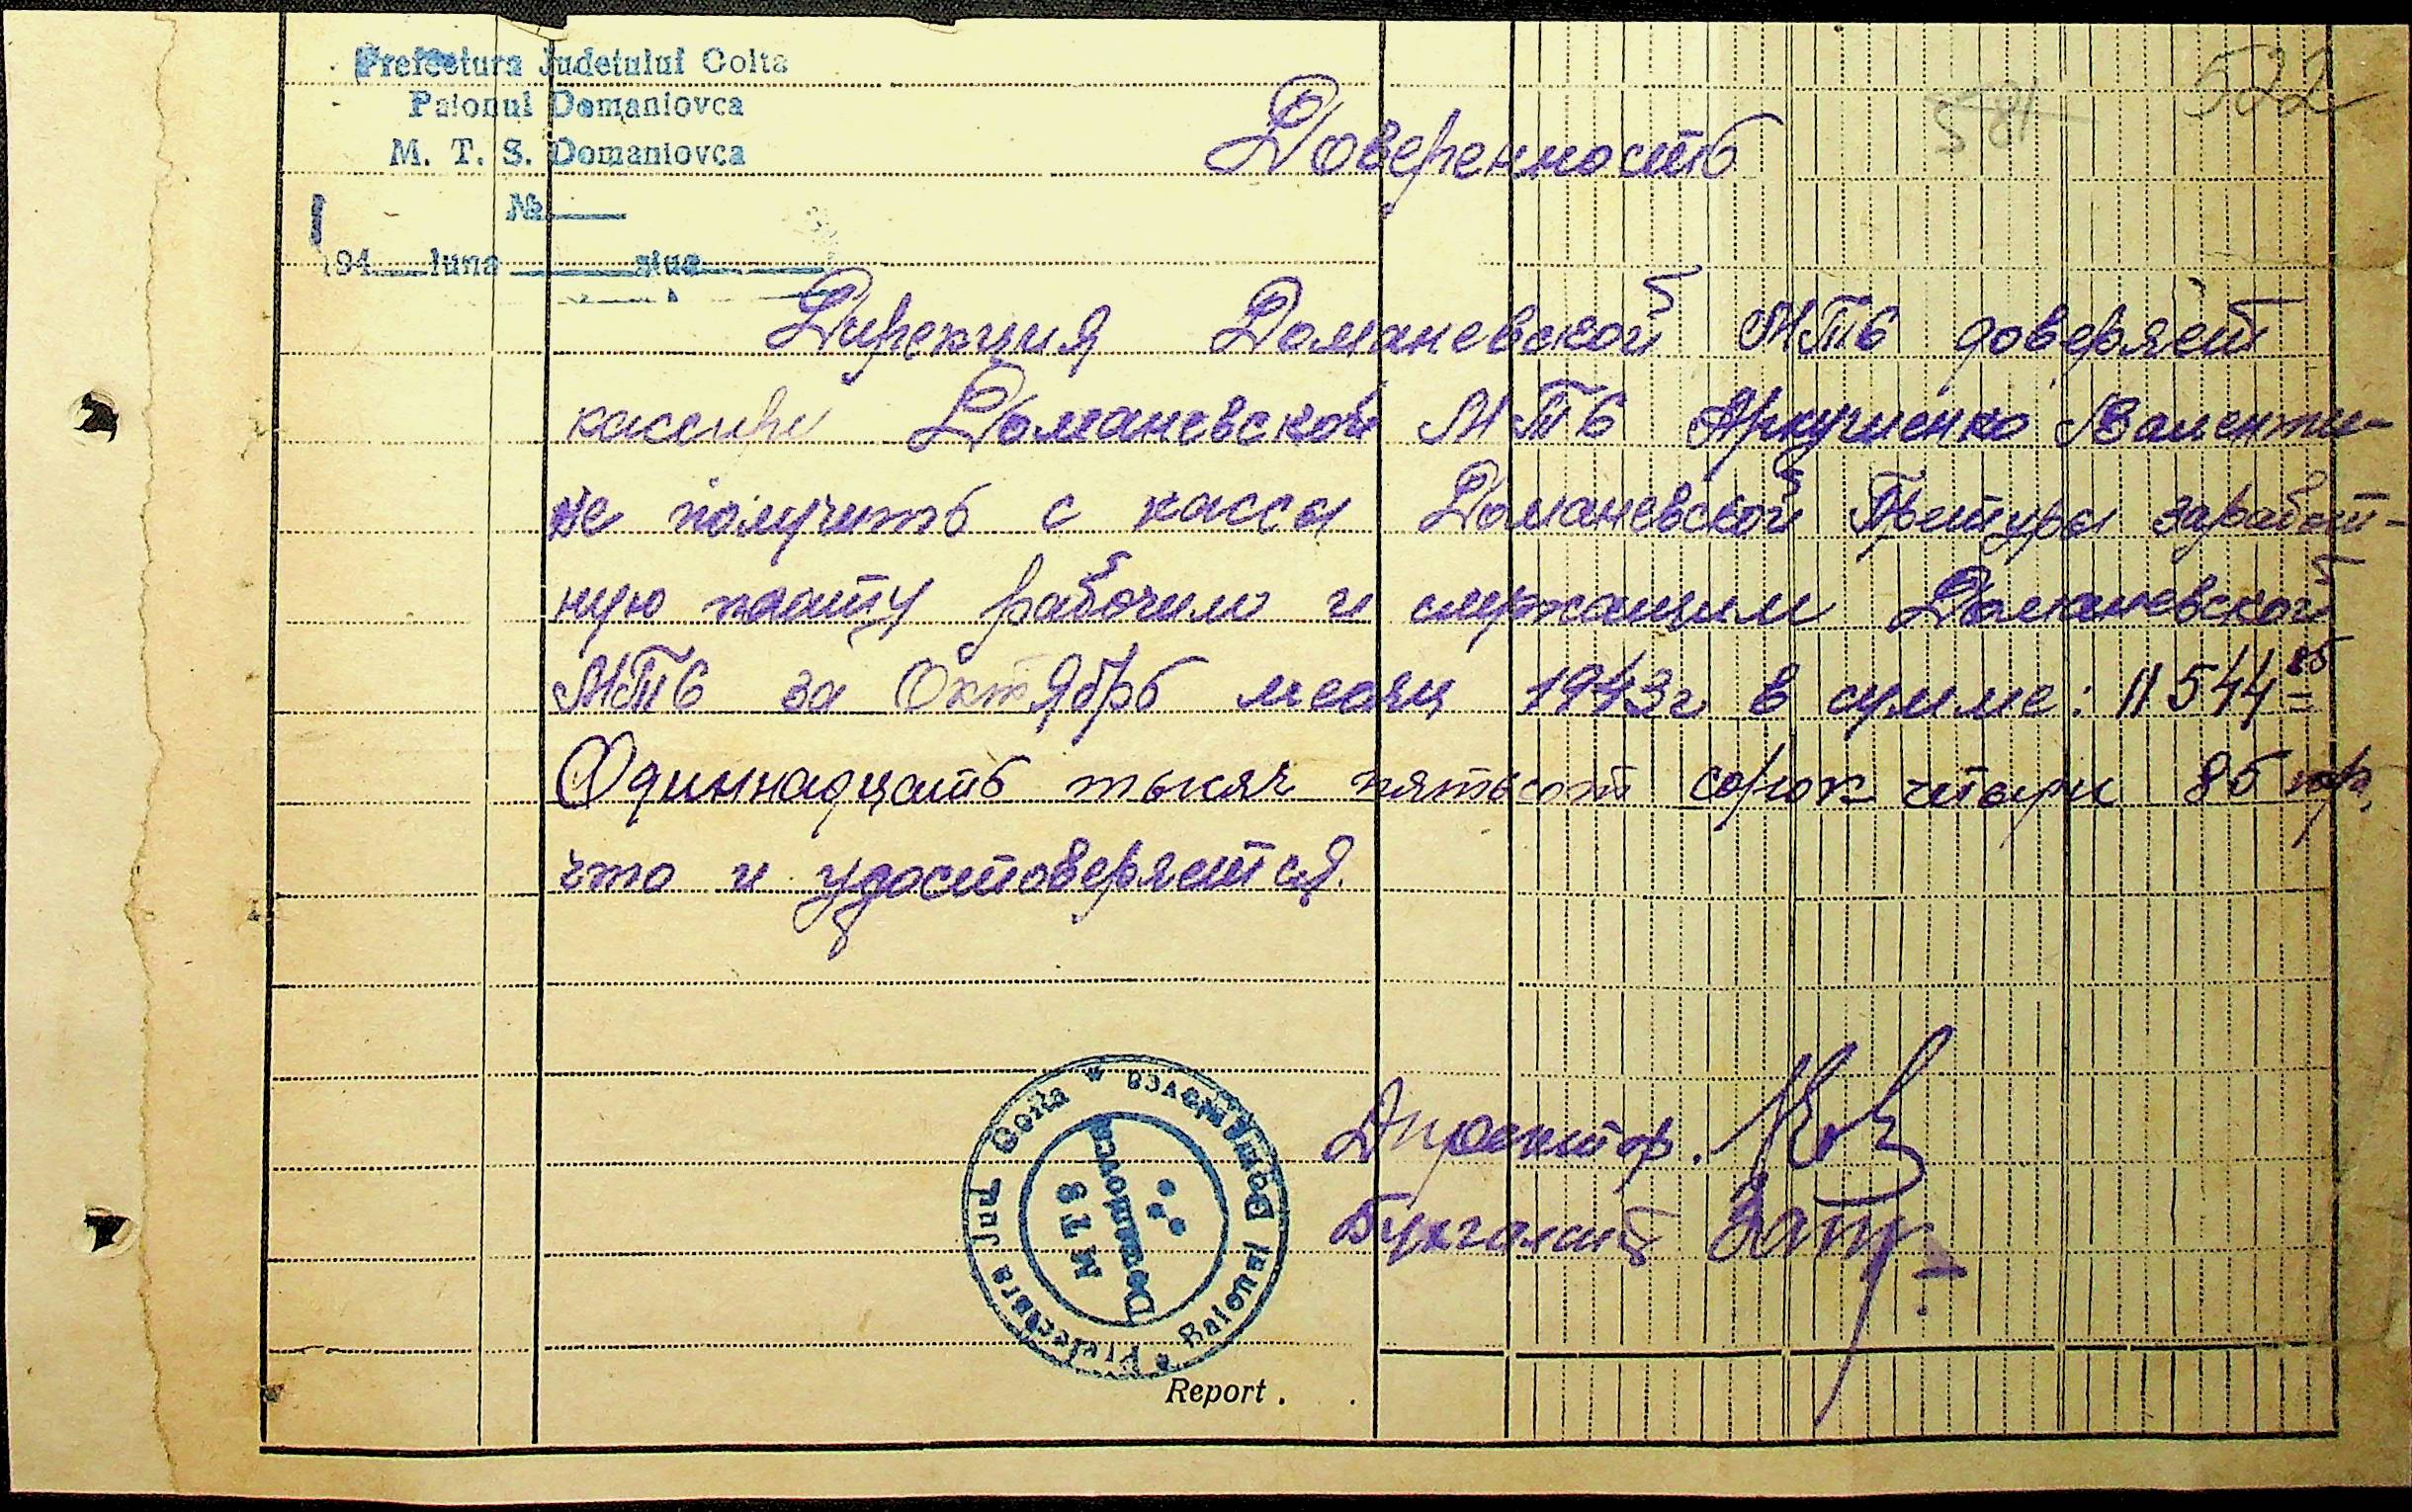 Prefectura Judetului Golta
Raionul Domaniovca
M. T. S. Domaniovca
№
194 luna ziua
581
522
Доверенность
Дирекция Доманевской МТС доверяет
кассиру Доманевской МТС Валенти-
не получить с кассы Доманевской Претуры заработ-
ную плату рабочим и служащим Доманевской
МТС за Октябрь месяц 1943г в сумме: 11544
Одиннадцать тысяч пятьсот сорок четыри
что и удостоверяется.
Директор.
Бухгалт
Prefectura Jud Golta * Raionul Domaniovca *
M T S
Domaniovca
Report .